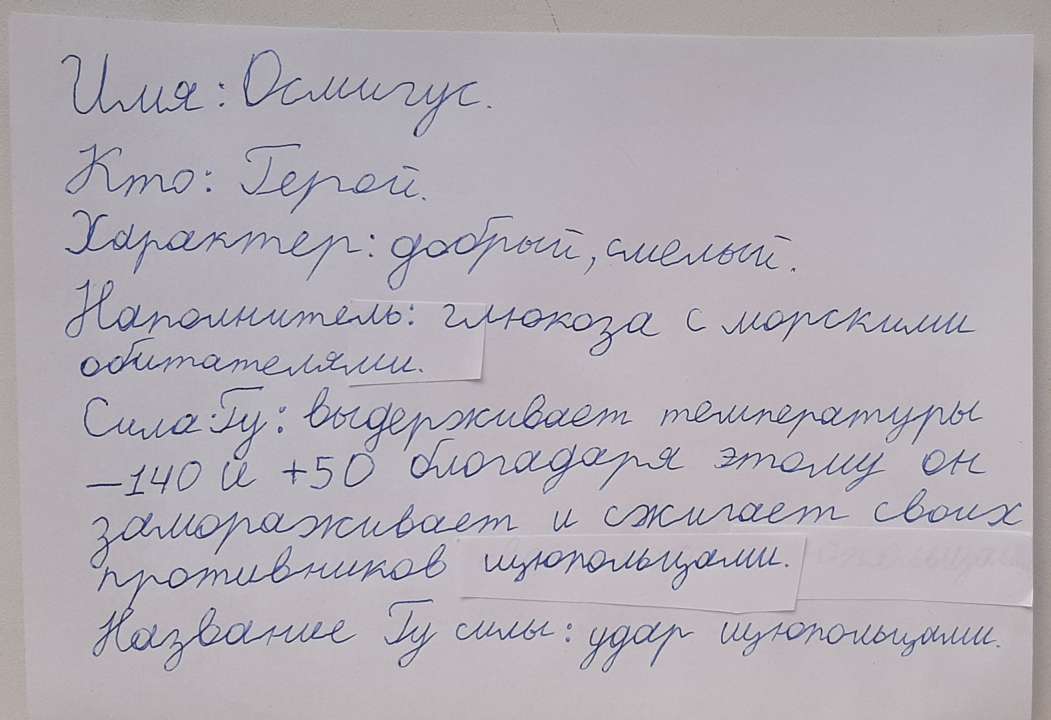 Имя: Осмигус.
Кто: Герой.
Характер: добрый, смелый.
Наполнитель: глюкоза с морскими
обитателями.
Сила Гу: выдерживает температуры
–140 и +50 блогадаря этому он
замораживает и сжигает своих
противников щюпольцами.
Название Гу силы: удар щюпольцами.